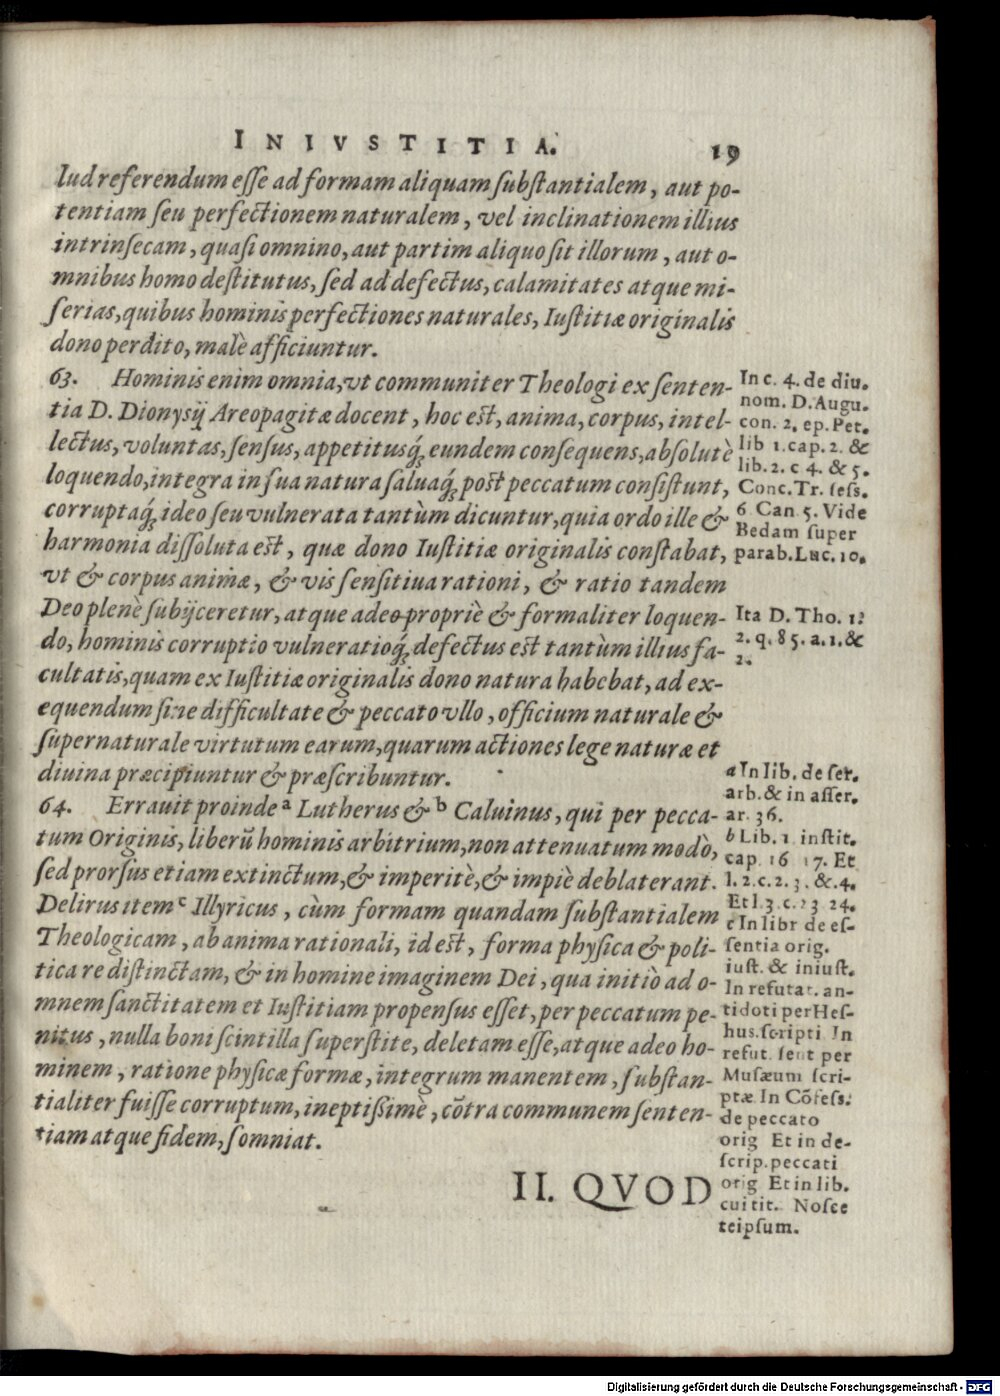 INIVSTITIA. 19
lud referendum esse ad formam aliquam substantialem, aut po-
tentiam seu perfectionem naturalem, vel inclinationem illius
intrinsecam, quasi omnino, aut partim aliquo sit illorum, aut o-
mnibus homo destitutus, sed ad defectus, calamitates atque mi-
serias, quibus hominis perfectiones naturales, Iustitiæ originalis
dono perdito, malè afficiuntur.
63. Hominis enim omnia, vt communiter Theologi ex senten-
tia D. Dionysij Areopagitæ docent, hoc est, anima, corpus, intel-
lectus, voluntas, sensus, appetitusq́; eundem consequens, absolutè
loquendo, integra in sua natura saluaq́; post peccatum consistunt,
corruptaq́; ideo seu vulnerata tantùm dicuntur, quia ordo ille &
harmonia dissoluta est, quæ dono Iustitiæ originalis constabat,
vt & corpus animæ, & vis sensitiua rationi, & ratio tandem
Deo plenè subijceretur, atque adeo propriè & formaliter loquen-
do, hominis corruptio vulneratioq́; defectus est tantùm illius fa-
cultatis, quam ex Iustitiæ originalis dono natura habebat, ad ex-
equendum sine difficultate & peccato vllo, officium naturale &
supernaturale virtutum earum, quarum actiones lege naturæ et
diuina præcipiuntur & præscribuntur.
64. Errauit proinde a Lutherus & b Caluinus, qui per pecca-
tum Originis, liberū hominis arbitrium, non attenuatum modò,
sed prorsus etiam extinctum, & imperitè, & impiè deblaterant.
Delirus item c Illyricus, cùm formam quandam substantialem
Theologicam, ab anima rationali, id est, forma physica & poli-
tica re distinctam, & in homine imaginem Dei, qua initiò ad o-
mnem sanctitatem et Iustitiam propensus esset, per peccatum pe-
nitus, nulla boni scintilla superstite, deletam esse, atque adeo ho-
minem, ratione physicæ formæ, integrum manentem, substan-
tialiter fuisse corruptum, ineptißimè, cōtra communem senten-
tiam atque fidem, somniat.
II. QVOD
In c. 4. de diu.
nom. D. Augu.
con. 2. ep. Pet.
lib 1. cap. 2. &
lib. 2. c 4. & 5.
Conc. Tr. sess.
6 Can 5. Vide
Bedam super
parab. Luc. 10.
Ita D. Tho. 1?
2. q. 85. a. 1. &
2.
a In lib. de ser.
arb. & in asser.
ar. 36.
b Lib. 1 instit.
cap. 16 17. Et
l. 2. c. 2. 3. &. 4.
Et l. 3. c. 23 24.
c In libr de es-
sentia orig.
iust. & iniust.
In refutat. an-
tidoti per Hes-
hus. scripti In
refut. sent per
Musæum scri-
ptæ. In Cōfess.
de peccato
orig Et in de-
scrip. peccati
orig Et in lib.
cui tit. Nosce
teipsum.
Digitalisierung gefördert durch die Deutsche Forschungsgemeinschaft - DFG